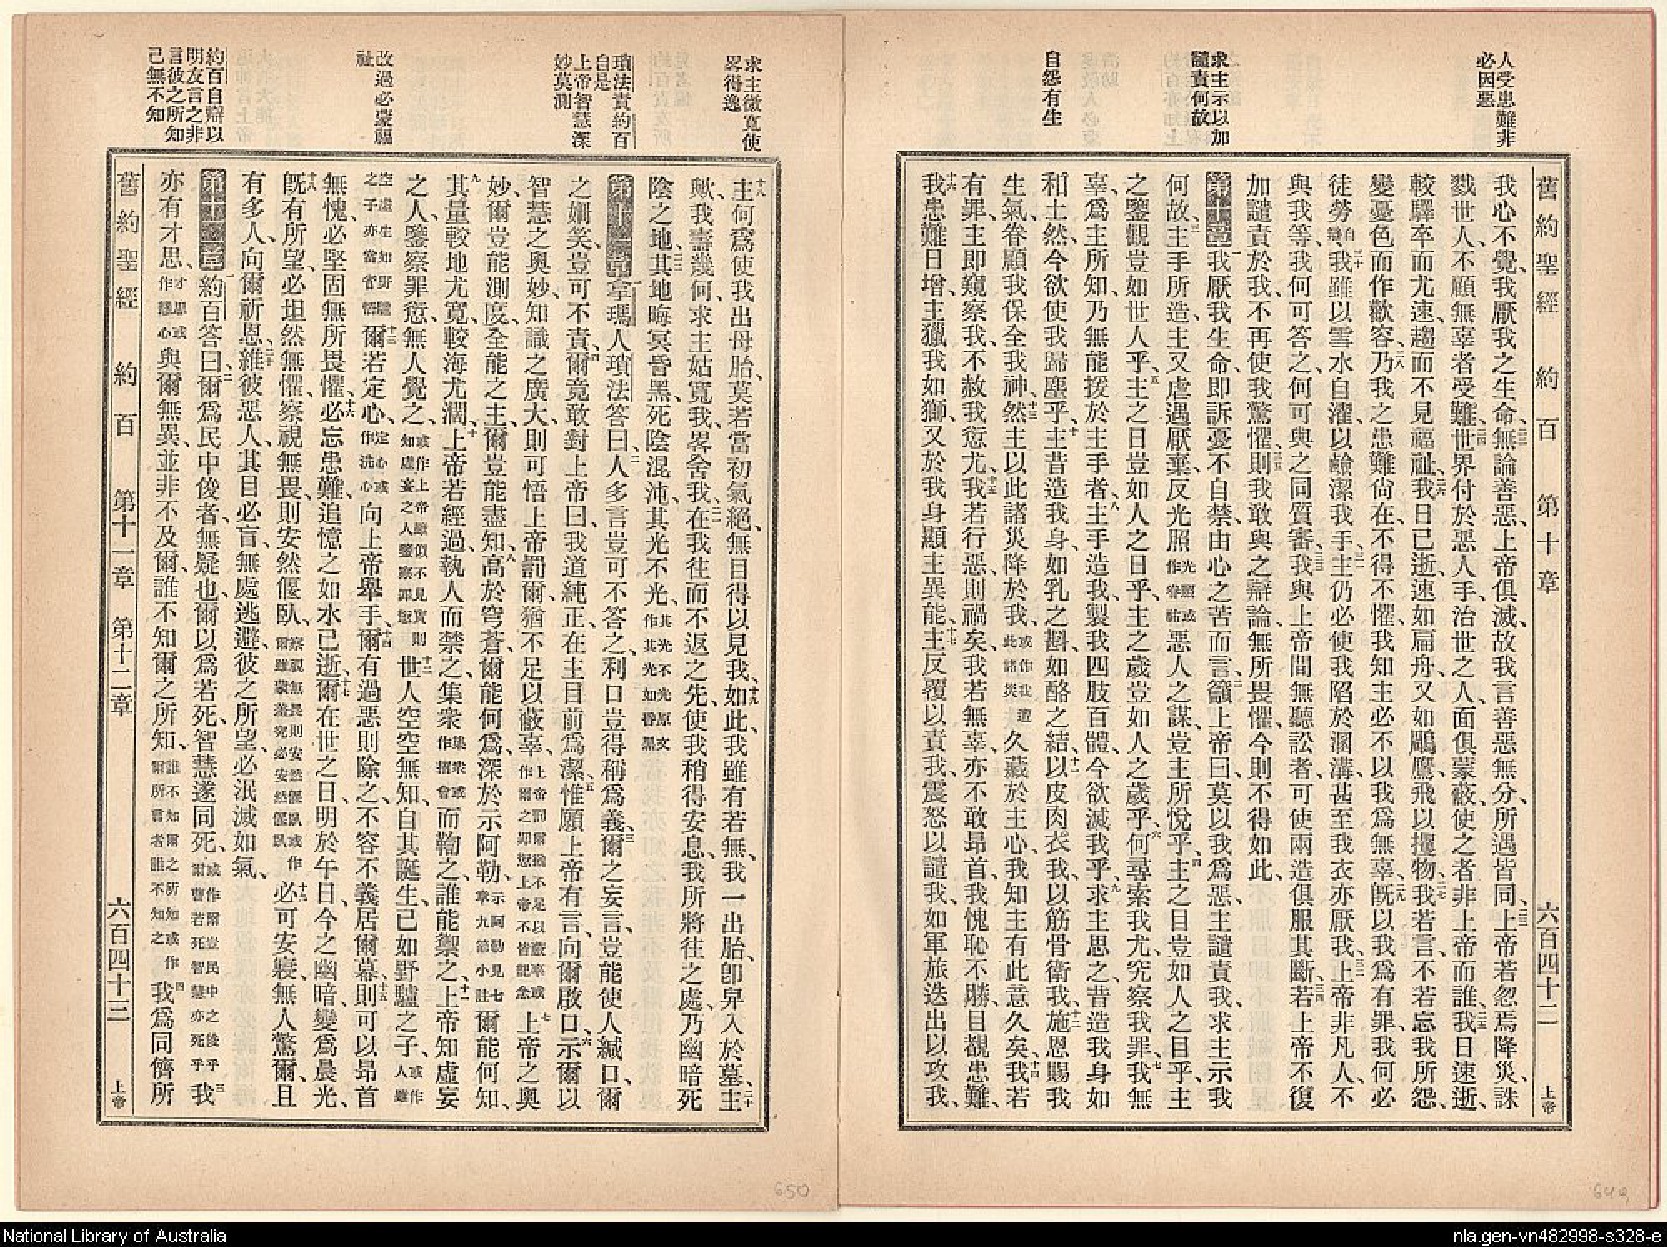 人受患難非
必因惡
求主示以加
譴責何故
自怨有生
舊約聖經 約百 第十章 六百四十二 上帝
我心不覺、我厭我之生命、無論善惡、上帝俱滅、故我言善惡無分、所遇皆同、上帝若忽焉降災、誅
戮世人、不顧無辜者受難、世界付於惡人手、治世之人、面俱蒙蔽、使之者非上帝而誰、我日速逝、
較驛卒而尤速、趨而不見福祉、我日已逝、速如扁舟、又如鵰鷹飛以攫物、我若言、不若忘我所怨、
變憂色而作歡容、乃我之患難尚在、不得不懼、我知主必不以我爲無辜、旣以我爲有罪、我何必
徒勞自辯、我雖以雪水自濯、以鹼潔我手、主仍必使我陷於溷溝、甚至我衣亦厭我、上帝非凡人、不
與我等、我何可答之、何可與之同質審、我與上帝間、無聽訟者、可使兩造俱服其斷、若上帝不復
加譴責於我、不再使我驚懼、則我敢與之辯論、無所畏懼、今則不得如此、
第十章 一我厭我生命、卽訴憂不自禁、由心之苦而言、二籲上帝曰、莫以我爲惡、主譴責我、求主示我
何故、三主手所造、主又虐遇厭棄、反光照光照或作眷祐惡人之謀、豈主所悅乎、四主之目豈如人之目乎、主
之鑒觀豈如世人乎、五主之日豈如人之日乎、主之歲豈如人之歲乎、六何尋索我尤、究察我罪、七我無
辜、爲主所知、乃無能援於主手者、八主手造我、製我四肢百體、今欲滅我乎、九求主思之、昔造我身如
和土然、今欲使我歸塵乎、十主昔造我身、如乳之斟、如酪之結、十一以皮肉衣我、以筋骨衛我、十二施恩賜我
生氣、眷顧我、保全我神、十三然主以此諸災降於我、此諸災或作我遭久藏於主心、我知主有此意久矣、十四我若
有罪、主卽窺察我、不赦我愆尤、十五我若行惡則禍矣、我若無辜、亦不敢昂首、我愧恥不勝、目覩患難、
十六我患難日增、主獵我如獅、又於我身顯主異能、十七主反覆以責我、震怒以譴我、如軍旅迭出以攻我、
求主微寬使
畧得逸
瑣法責約百
自是
上帝智慧深
妙莫測
改過必蒙賜
祉
約百自辯以
明友言之非
言彼之所知
己無不知
十八主何爲使我出母胎、莫若當初氣絕、無目得以見我、十九如此、我雖有若無、我一出胎、卽舁入於墓、二十主
歟、我壽幾何、求主姑寬我、畧舍我、二一在我往而不返之先、使我稍得安息、我所將往之處、乃幽暗死
陰之地、二二其地晦冥昏黑、死陰混沌、其光不光、其光不光原文作其光如昏黑
第十一章 一拿瑪人瑣法答曰、二人多言、豈可不答之、利口豈得稱爲義、三爾之妄言、豈能使人緘口、爾
之姍笑、豈可不責、四爾竟敢對上帝曰、我道純正、在主目前爲潔、五惟願上帝有言、向爾啟口、六示爾以
智慧之奧妙、知識之廣大、則可悟上帝罰爾、猶不足以蔽辜、上帝罰爾猶不足以蔽辜或作爾之卽愆上帝不皆記念七上帝之奧
妙、爾豈能測度、全能之主、爾豈能盡知、八高於穹蒼、爾能何爲、深於示阿勒、示阿勒見七章九節小註爾能何知、
九其量較地尤寬、較海尤濶、十上帝若經過、執人而禁之、集衆集衆或作擢會而鞫之、誰能禦之、十一上帝知虛妄
之人、鑒察罪愆、無人覺之、或作上帝雖似不見實則知虛妄之人鑒察罪愆十二世人空空無知、自其誕生、已如野驢之子、或作人雖
空虛生如野驢之子亦當省悟十三爾若定心、定心或作洗心向上帝舉手、十四爾有過惡則除之、不容不義居爾幕、十五則可以昂首
無愧、必堅固無所畏懼、十六必忘患難、追憶之如水已逝、十七爾在世之日、明於午日、今之幽暗、變爲晨光、
十八旣有所望、必坦然無懼、察視無畏、則安然偃臥、察視無畏則安然偃臥或作爾雖蒙羞究必安然偃臥十九必可安寢、無人驚爾、且
有多人向爾祈恩、二十維彼惡人、其目必盲、無處逃避、彼之所望、必泯滅如氣、
第十二章 一約百答曰、二爾爲民中俊者無疑也、爾以爲若死、智慧遂同死、或作爾豈民中之俊乎爾曹若死智慧亦死乎三我
亦有才思、才思或作聰心與爾無異、並非不及爾、誰不知爾之所知、誰不知爾之所知或作爾所言者誰不知之四我爲同儕所
舊約聖經 約百 第十一章 第十二章 六百四十三 上帝
650
649
National Library of Australia
nla.gen-vn482998-s328-e